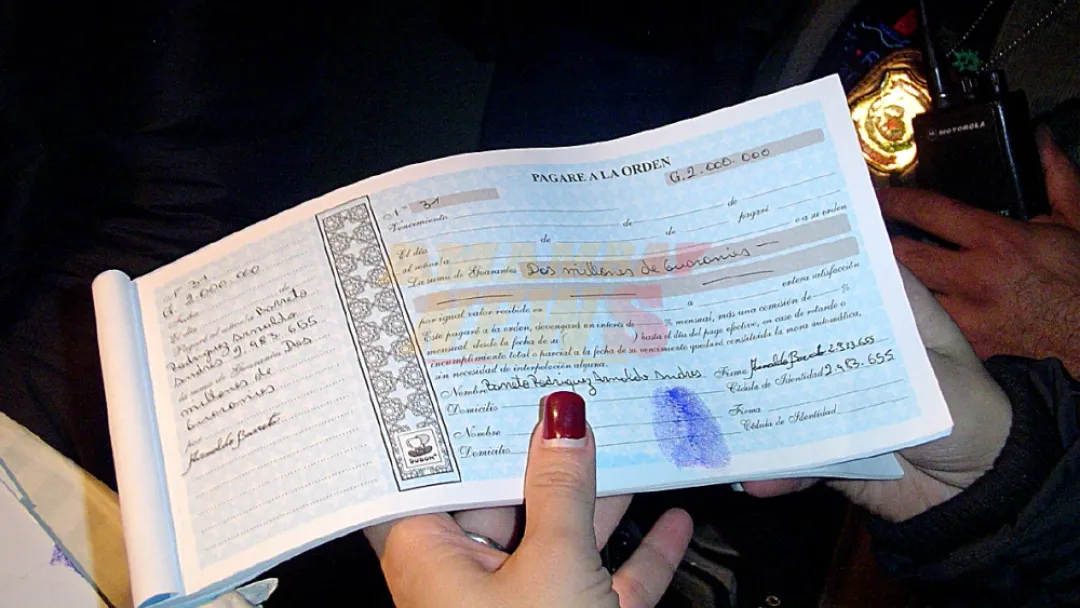 MOTOROLA
PAGARE A LA ORDEN
G. 2.000.000
N° 31
Vencimiento de de
El día de de pagaré
al señor/a o a su orden
La suma de Guaraníes Dos millones de Guaranies
por igual valor recibido en a entera satisfacción
Este pagaré a la orden, devengará un interés de % mensual, más una comisión de %
mensual, desde la fecha de su ) hasta el día del pago efectivo, en caso de retardo o
incumplimiento total o parcial a la fecha de su vencimiento quedará constituída la mora automática,
sin necesidad de interpelación alguna.
Nombre Barreto Rodriguez Arnaldo Andres Firma Arnaldo Barreto
Domicilio Cédula de Identidad 2.983.655
Nombre Firma
Domicilio Cédula de Identidad
N° 31
G. 2.000.000
de
El día
Pagaré al señor/a Barreto
Rodriguez Arnaldo
Andres 2.983.655
la suma de Guaraníes Dos
millones de
Guaranies
por
Arnaldo Barreto